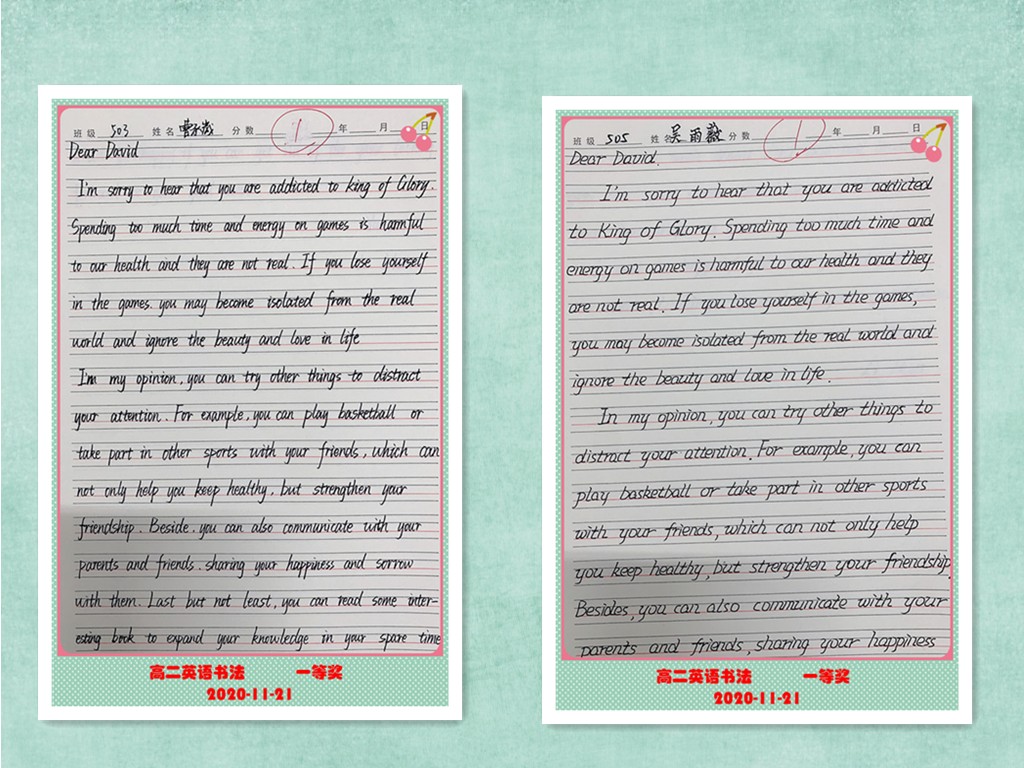 班级 503 姓名 曹 分数 1 年 月 日
Dear David
I'm sorry to hear that you are addicted to king of Glory.
Spending too much time and energy on games is harmful
to our health and they are not real. If you lose yourself
in the games. you may become isolated from the real
world and ignore the beauty and love in life
I'm my opinion, you can try other things to distract
your attention. For example, you can play basketball or
take part in other sports with your friends, which can
not only help you keep healthy, but strengthen your
friendship. Beside. you can also communicate with your
parents and friends. sharing your happiness and sorrow
with them. Last but not least, you can read some inter-
esting book to expand your knowledge in your spare time
高二英语书法 一等奖
2020-11-21
班级 505 姓名 吴雨薇 分数 1 年 月 日
Dear David.
I'm sorry to hear that you are addicted
to King of Glory. Spending too much time and
energy on games is harmful to our health and they
are not real. If you lose yourself in the games,
you may become isolated from the real world and
ignore the beauty and love in life.
In my opinion, you can try other things to
distract your attention. For example, you can
play basketball or take part in other sports
with your friends, which can not only help
you keep healthy, but strengthen your friendship.
Besides, you can also communicate with your
parents and friends, sharing your happiness
高二英语书法 一等奖
2020-11-21